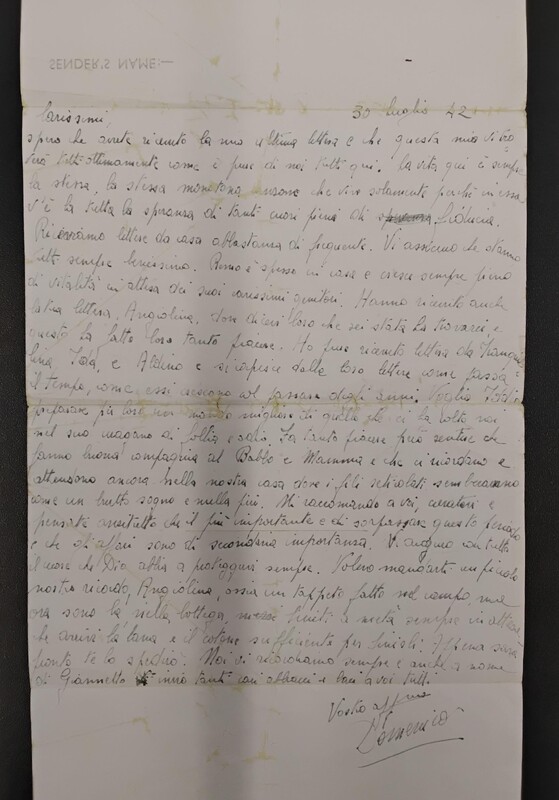 SENDER'S NAME:—
30 Luglio 42
Carissimi,
spero che avete ricevuto la mia ultima lettera e che questa mia vi tro
verà tutti ottimamente come è pure di noi tutti qui. La vita qui è sempre
la stessa, la stessa monotona canzone che vive solamente perchè in essa
v'è la tutta la speranza di tanti cuori pieni di fiducia.
Riceviamo lettere da casa abbastanza di frequente. Vi assicuro che stanno
tutti sempre benissimo. è spesso in casa e cresce sempre pieno
di vitalità in attesa dei suoi carissimi genitori. Hanno ricevuto anche
la tua lettera, Angiolina, dove dicevi loro che sei stata a trovarci, e
questo ha fatto loro tanto piacere. Ho pure ricevuto lettera da
Ida, e Aldino e si capisce dalle loro lettere come passa
il tempo, come essi crescono col passare degli anni. Voglia Iddio
preparare per loro un mondo migliore di quello che ci ha volti noi
nel suo uragano di follia e odio. Fa tanto piacere però sentire che
fanno buona compagnia al Babbo e Mamma e che ci ricordano e
attendono ancora nella nostra casa dove i fili schiodati sembreranno
come un brutto sogno e nulla più. Mi raccomando a voi, curatevi e
pensate anzitutto che il più importante è di sorpassare questo periodo
e che gli affari sono di secondaria importanza. Vi auguro con tutto
il cuore che Dio abbia a proteggervi sempre. Volevo mandarti un piccolo
nostro ricordo, Angiolina, ossia un tappeto fatto nel campo, ma
ora sono là nella bottega, mezzi finiti a metà sempre in attesa
che arrivi la lana e il cotone sufficiente per finirli. Appena sarà
pronto te lo spedirò. Noi vi ricordiamo sempre e anche a nome
di Giannetto invio tanti cari abbracci e baci a voi tutti.
Vostro aff.mo
Domenico